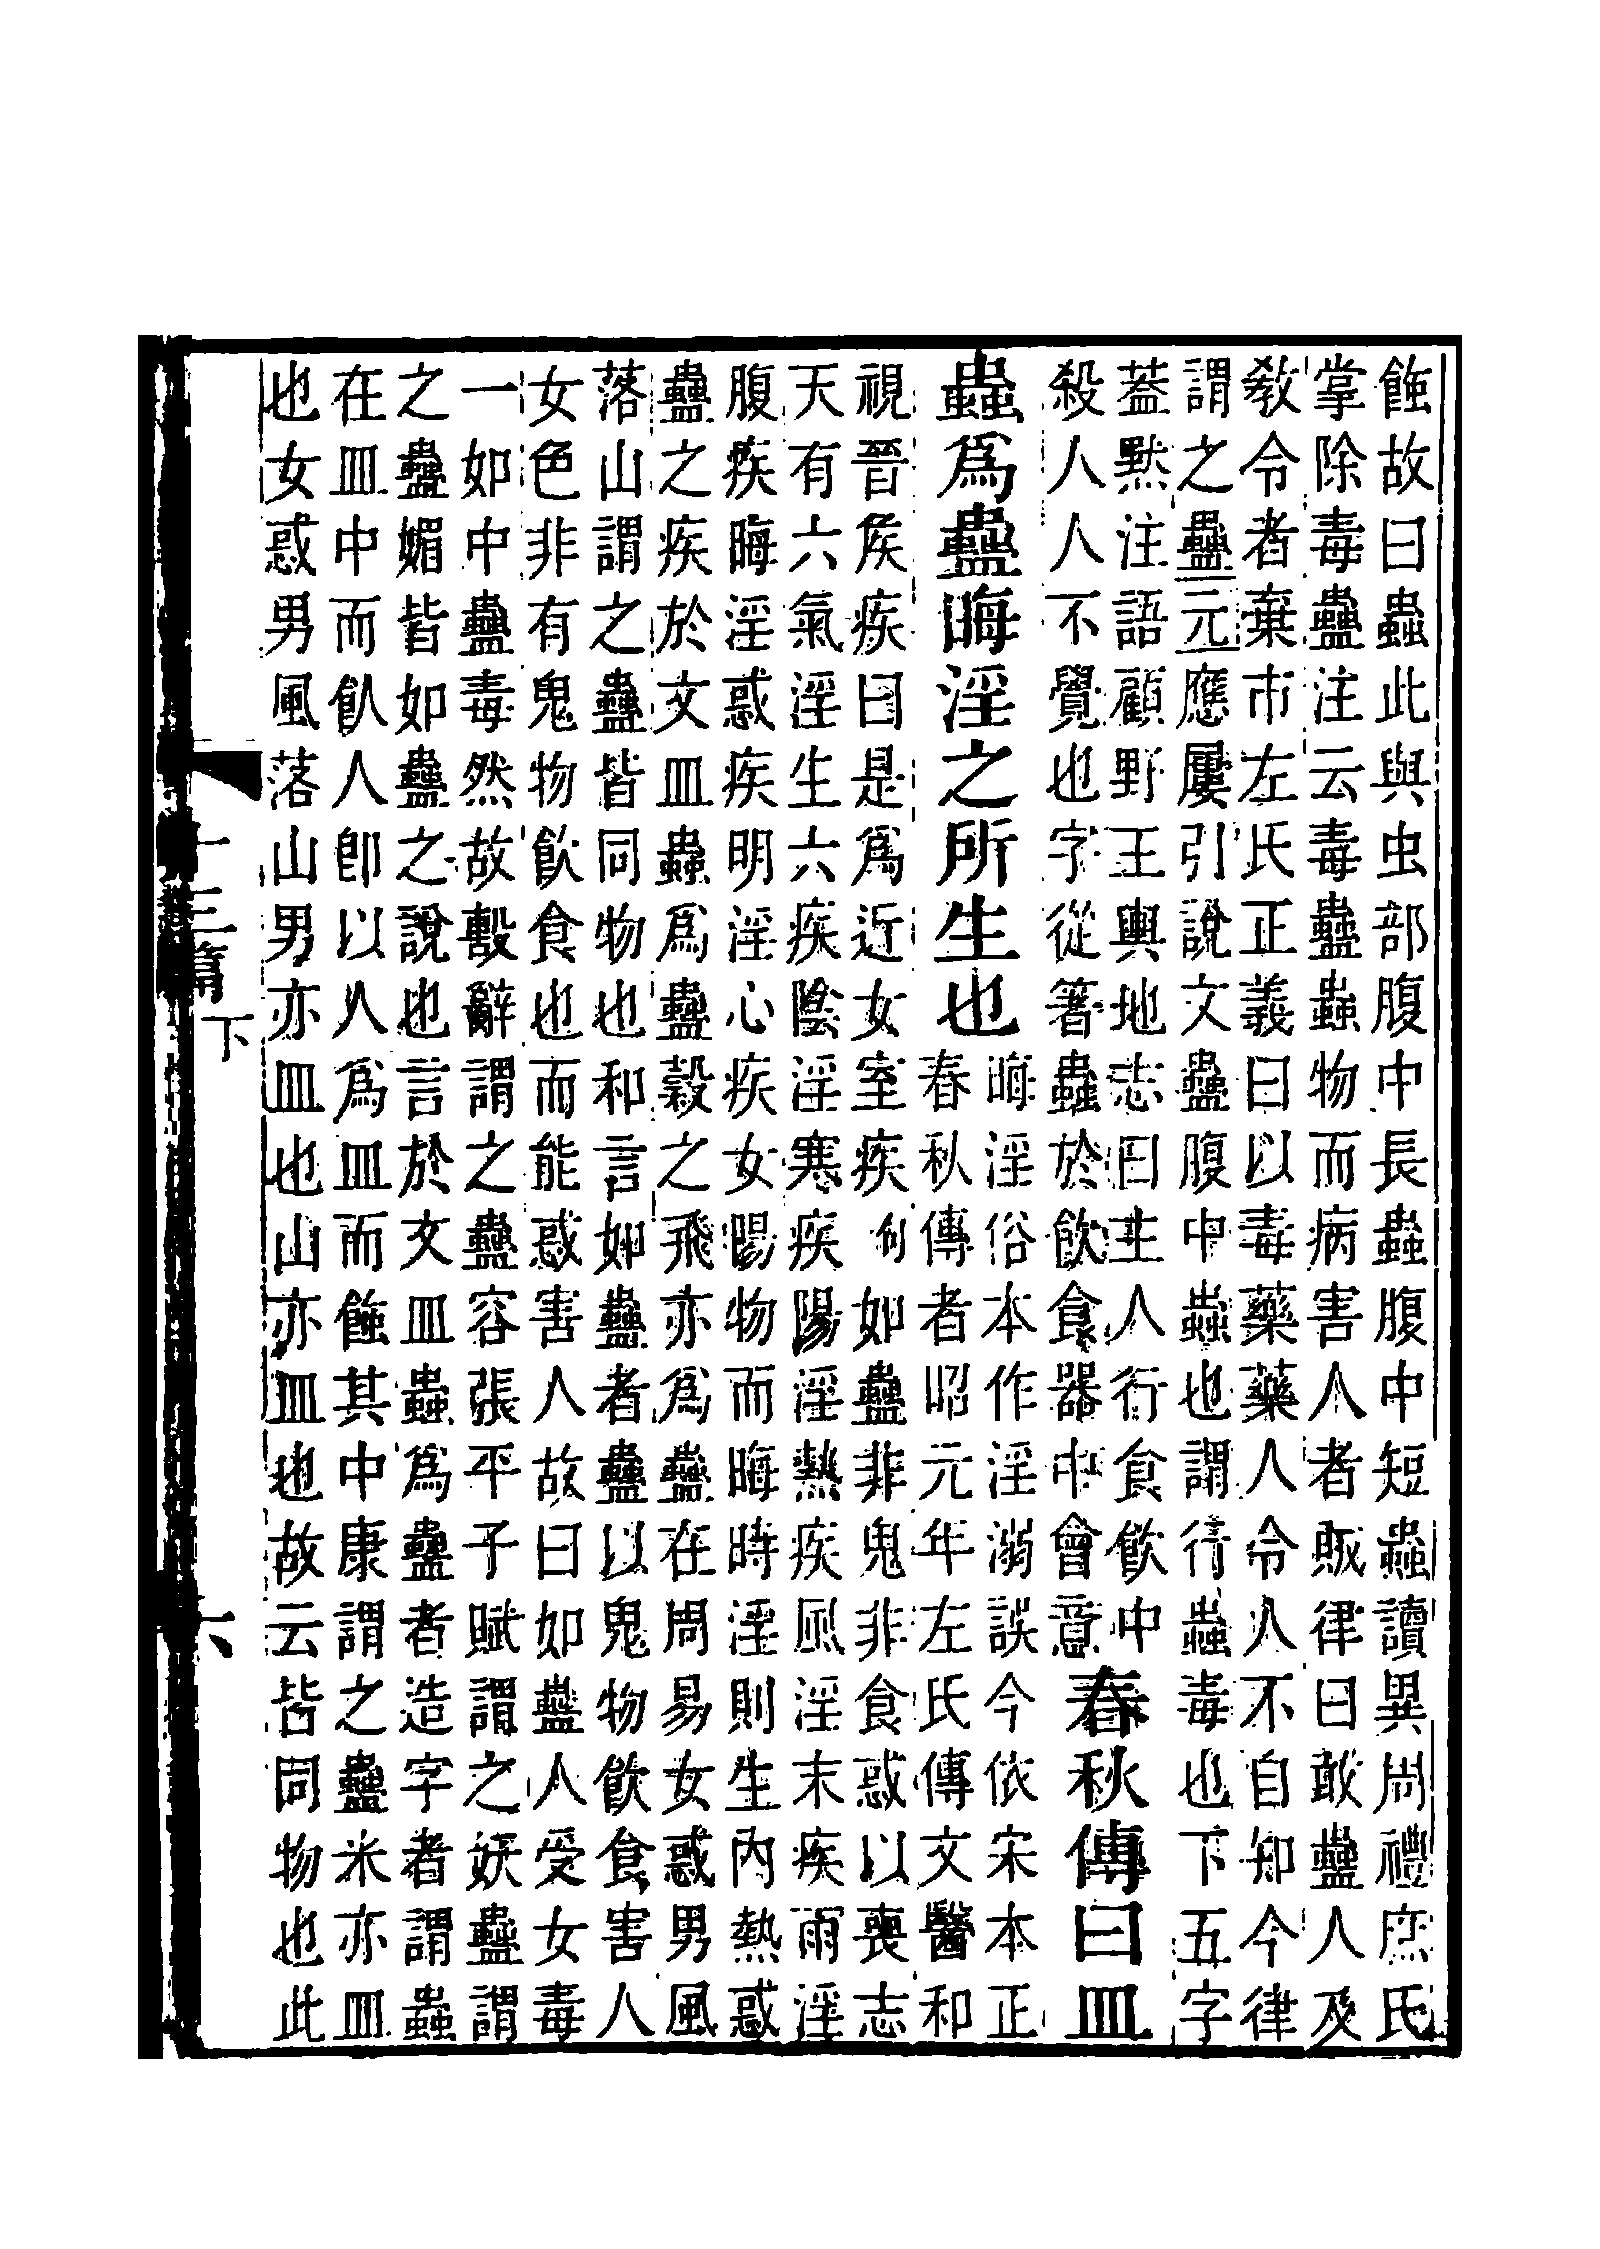 蝕故曰蟲此與虫部腹中長蟲腹中短蟲讀異周禮庶氏
掌除毒蠱注云毒蠱蟲物而病害人者賊律曰敢蠱人及
敎令者棄市左氏正義曰以毒藥藥人令人不自知今律
謂之蠱元應屢引說文蠱腹中蟲也謂行蟲毒也下五字
蓋默注語顧野王輿地志曰主人行食飮中
殺人人不覺也字從箸蟲於飮食器中會意
春秋傳曰皿
蟲爲蠱晦淫之所生也
晦淫俗本作淫溺誤今依宋本正
春秋傳者昭元年左氏傳文醫和
視晉矦疾曰是爲近女室疾句如蠱非鬼非食惑以喪志
天有六氣淫生六疾陰淫寒疾陽淫熱疾風淫末疾雨淫
腹疾晦淫惑疾明淫心疾女陽物而晦時淫則生內熱惑
蠱之疾於文皿蟲爲蠱穀之飛亦爲蠱在周易女惑男風
落山謂之蠱皆同物也和言如蠱者蠱以鬼物飮食害人
女色非有鬼物飮食也而能惑害人故曰如蠱人受女毒
一如中蠱毒然故𣪠辭謂之蠱容張平子賦謂之妖蠱謂
之蠱媚皆如蠱之說也言於文皿蟲爲蠱者造字者謂蟲
在皿中而飤人卽以人爲皿而蝕其中康謂之蠱米亦皿
也女惑男風落山男亦皿也山亦皿也故云皆同物也此
十三篇下 六